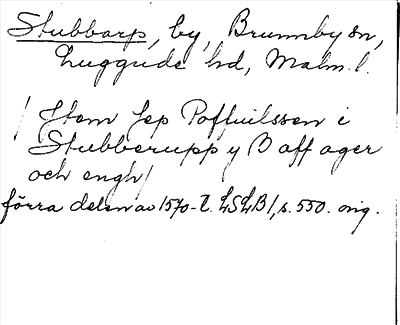 Stubbarp, by, Brunnby sn,
Luggude hd, Malm. l.
/ Jtem Jep Poffuilssen i
Stubberupp y B aff ager
och engh /
förra delen av 1570-t. LSLB 1, s. 550. orig.